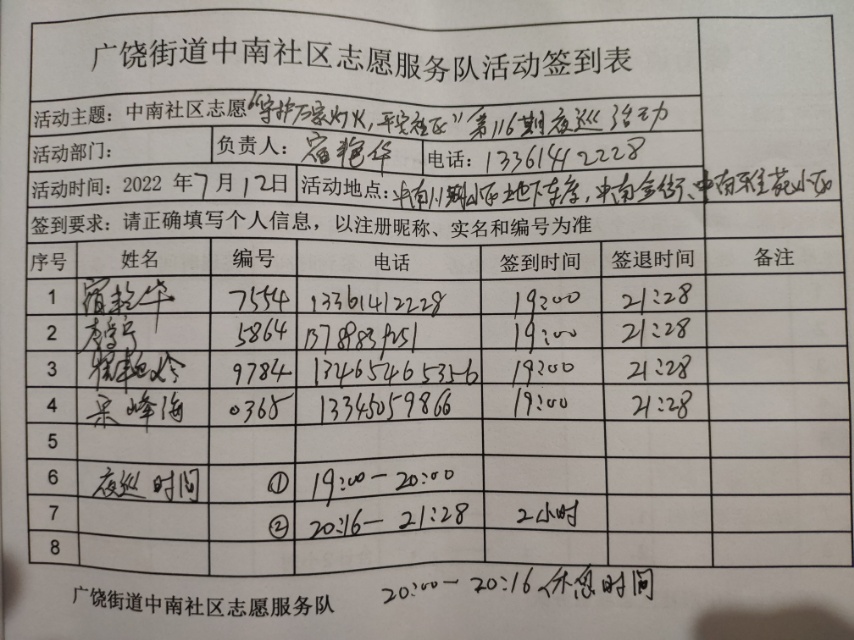 广饶街道中南社区志愿服务队活动签到表
活动主题：中南社区志愿“守护万家灯火，平安社区”第116期夜巡活动
活动部门： 负责人：宿艳华 电话：13361412228
活动时间：2022 年7月12日 活动地点：中南小区地下车库，中南金街、中南 苑小区
签到要求：请正确填写个人信息，以注册昵称、实名和编号为准
序号 姓名 编号 电话 签到时间 签退时间 备注
1 宿艳华 7554 13361412228 19:00 21:28
2 5864 19:00 21:28
3 9784 13465465356 19:00 21:28
4 峰海 0365 13345059866 19:00 21:28
5
6 夜巡时间 ① 19:00－20:00
7 ② 20:16－21:28 2小时
8
广饶街道中南社区志愿服务队 20:00－20:16休息时间